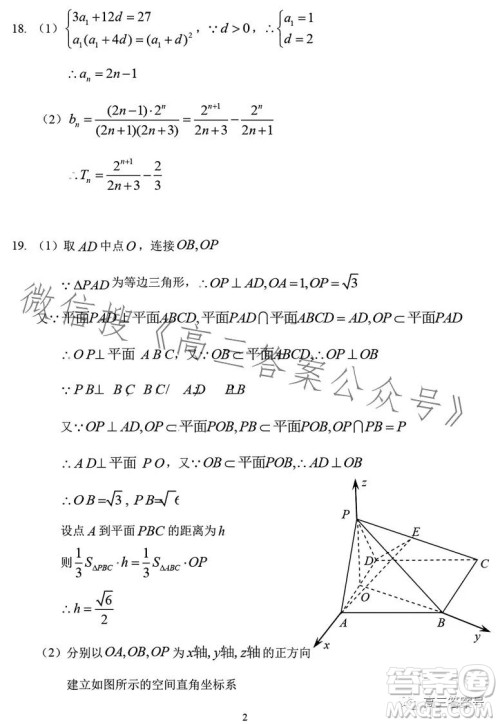 18. (1) { 3a₁+12d=27
a₁(a₁+4d)=(a₁+d)² , ∵d>0, ∴ { a₁=1
d=2
∴aₙ=2n−1
(2) bₙ=(2n−1)·2ⁿ/(2n+1)(2n+3)=2ⁿ⁺¹/2n+3−2ⁿ/2n+1
∴Tₙ=2ⁿ⁺¹/2n+3−2/3
19. (1) 取AD中点O，连接OB,OP
∵ΔPAD为等边三角形，∴OP⊥AD,OA=1,OP=√3
又∵平面PAD⊥平面ABCD,平面PAD∩平面ABCD=AD,OP⊂平面PAD
∴OP⊥平面 ABC，又∵OB⊂平面ABCD,∴OP⊥OB
∵PB⊥ BC BC// AD, ⊥PB
又∵OP⊥AD,OP⊂平面POB,PB⊂平面POB,OP∩PB=P
∴AD⊥平面 PO，又∵OB⊂平面POB,∴AD⊥OB
∴OB=√3,PB=√6
设点A到平面PBC的距离为h
则1/3 S△PBC·h=1/3 S△ABC·OP
∴h=√6/2
z
P
E
D
C
O
A
B
x
y
(2) 分别以OA,OB,OP为x轴,y轴,z轴的正方向
建立如图所示的空间直角坐标系
2
微信搜《高三答案公众号》
高三答案号